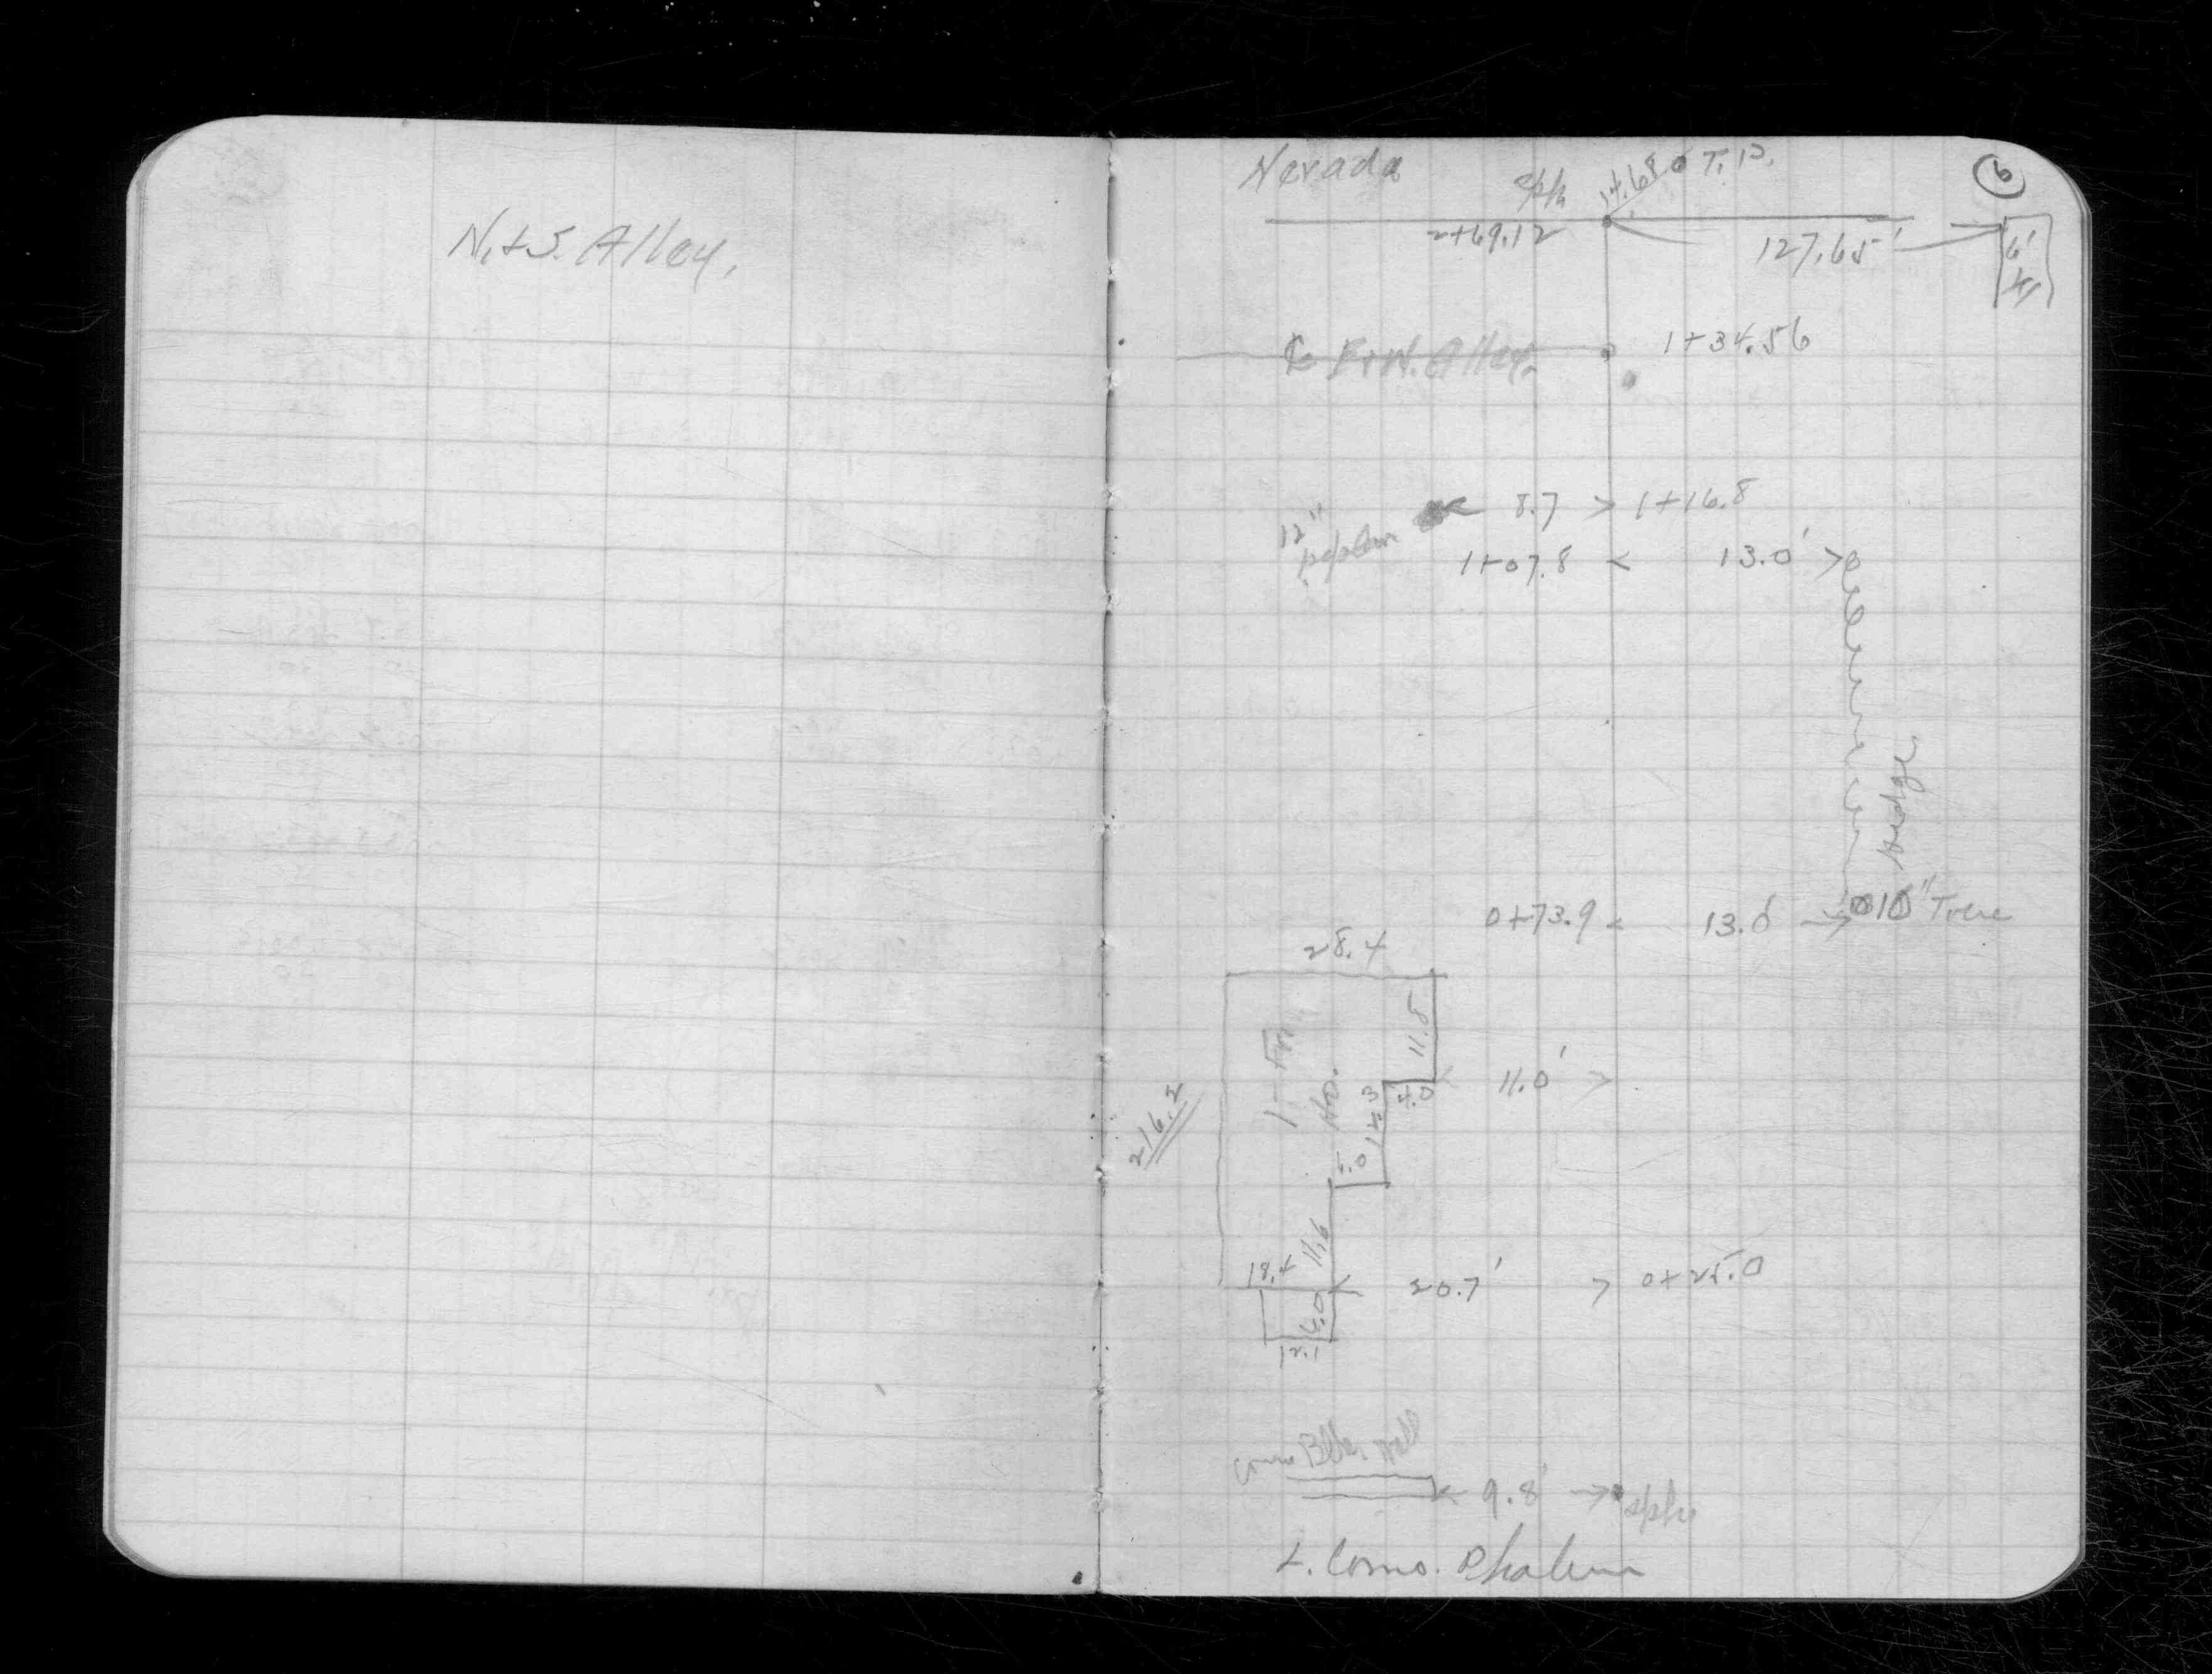 N.+S. Alley.
6
Nevada
spk
14.68
T.P.
2+69.12
127.65'
6'
℄ E+W. Alley.
1+34.56
12"
8.7 > 1+16.8
1+07.8 < 13.0' >
Hedge
0+73.9 < 13.0 → 10" Tree
28.4
11.8
1-Fr.
Ho.
11.0' >
4.0
12.3
216.2
11.6
18.4
< 20.7' > 0+25.0
6.0
12.1
conc Blk. Wall
< 9.8' → spke
L. Como. Phalen